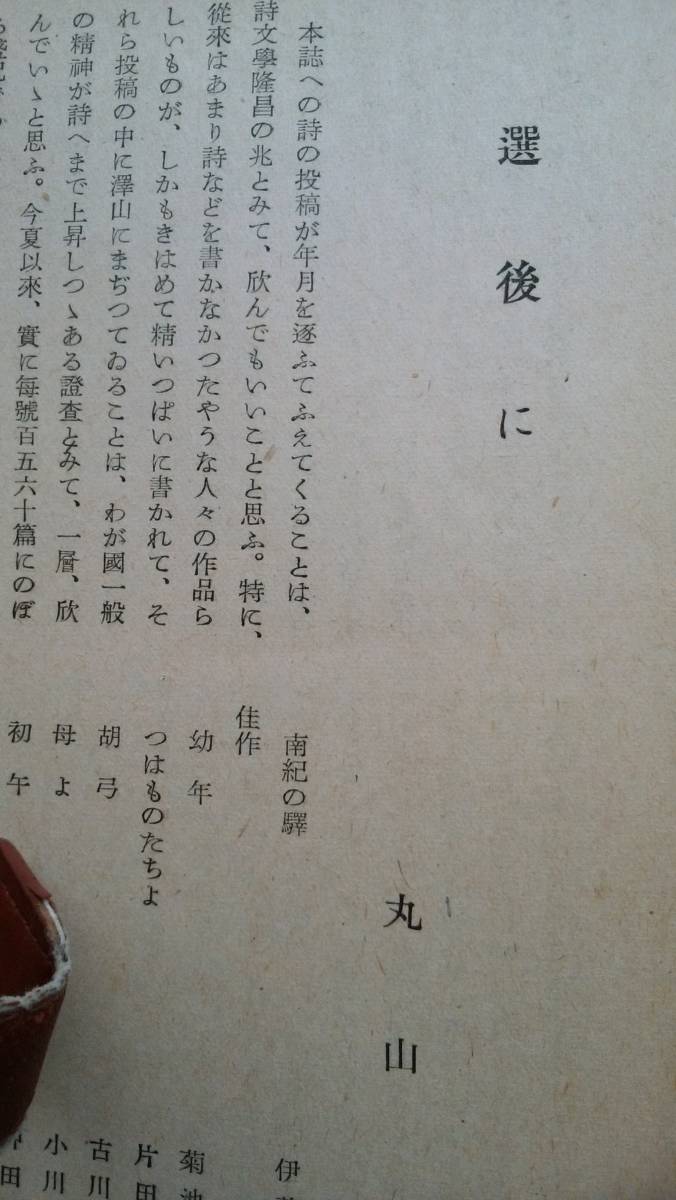 選後に
丸山
本誌への詩の投稿が年月を逐ふてふえてくることは、
詩文學隆昌の兆とみて、欣んでもいいことと思ふ。特に、
從來はあまり詩などを書かなかつたやうな人々の作品ら
しいものが、しかもきはめて精いつぱいに書かれて、そ
れら投稿の中に澤山にまぢつてゐることは、わが國一般
の精神が詩へまで上昇しつゝある證查とみて、一層、欣
んでいゝと思ふ。今夏以來、實に每號百五六十篇にのぼ
南紀の驛
佳作
幼年
つはものたちよ
胡弓
母よ
初午
伊
菊池
片田
古川
小川
田